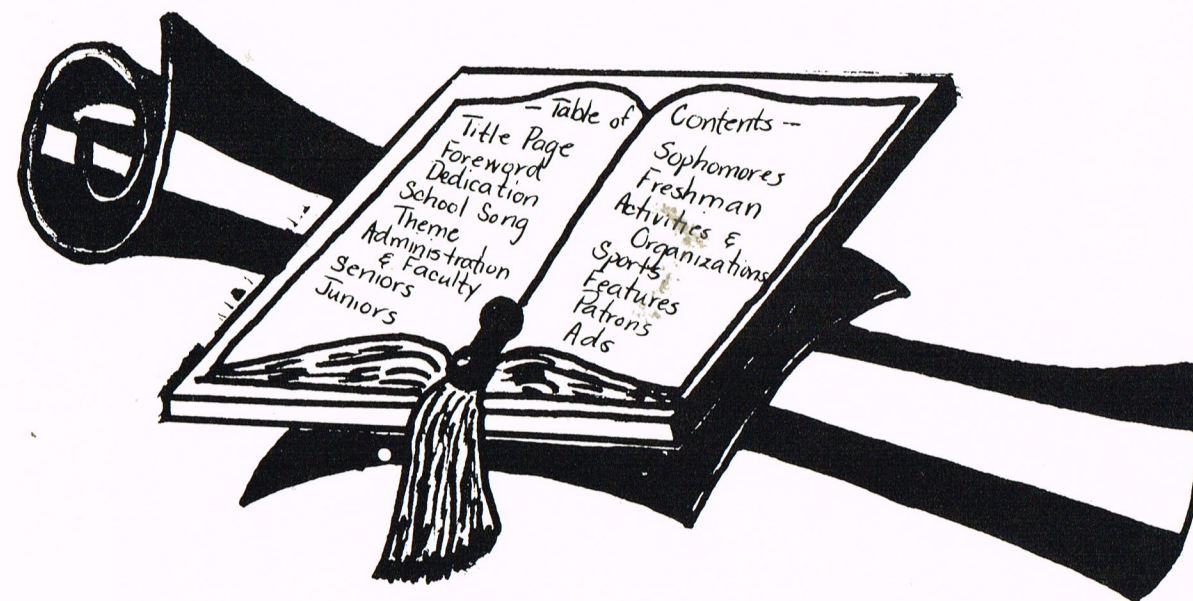 - Table of Contents -
Title Page
Foreword
Dedication
School Song
Theme
Administration
& Faculty
Seniors
Juniors
Sophomores
Freshman
Activities &
Organizations
Sports
Features
Patrons
Ads